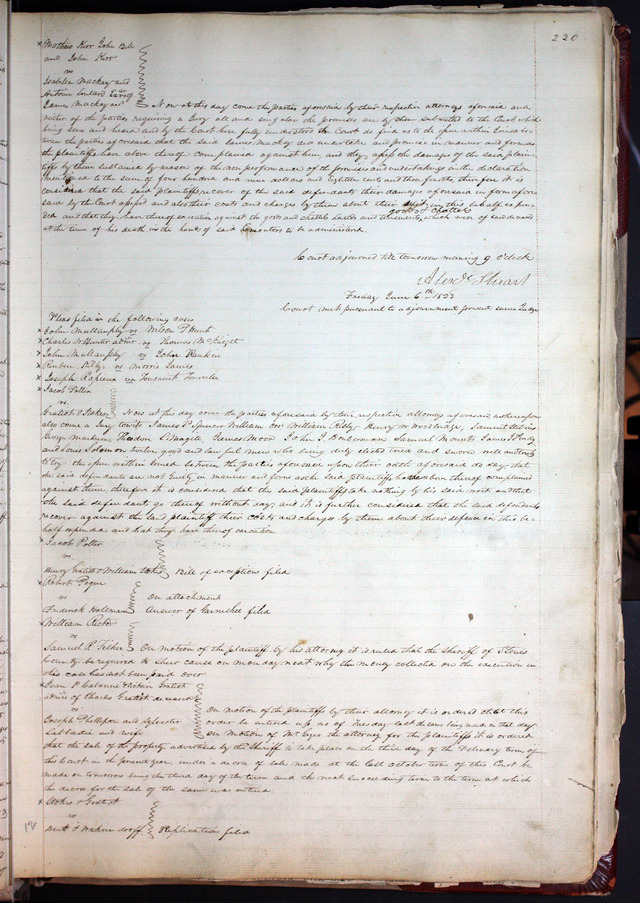 220
Mathew Kerr John Bell
and John Kerr
vs
Isabella Mackay and
Antoine Soulard Exrs of
James Mackay decd
Now at this day come the parties aforesaid by their respective attorneys aforesaid and
neither of the parties requiring a Jury all and singular the premises are by them submitted to the Court which
being seen and heard and by the Court here fully understood the Court do find as to the issue within Joined be
tween the parties aforesaid that the said James Mackay did undertake and promise in manner and form as
the plaintiffs have above thereof complained against him, and they assess the damages of the said plain
tiffs by them sustained by reason of the non performance of the promises and undertakings in the declaration
mentioned to the sum of four hundred and nine dollars and Eighteen cents and three fourths, therefore it is
considered that the said plaintiffs recover of the said defendants their damages aforesaid in form afore
said by the Court assessed and also their costs and charges by them about their suit in this behalf expen
ded and that they have thereof execution against the goods and chattels Lands and tenements, which were of said deceased
goods & chattels
at the time of his death in the hands of said Executors to be administered.
Court adjourned till tomorrow morning 9 o'clock
Alexr Stuart
Friday June 6th 1823
Court met pursuant to adjournment present same Judge
Pleas filed in the following cases
John Mullanphy vs Wilson P Hunt
Charles W Hunter admr vs Thomas McKnight
John Mullanphy vs John Rankin
Reuben Riley vs Morris James
Joseph vs Toussaint
Jacob Potter
vs
Gratiot & Stokes
Now at this day come the parties aforesaid by their respective attorneys aforesaid whereupon
also come a Jury towit James P Spencer William Orr William Risley Henry W Woodbridge, Samuel
George Theodore L McGill James Moon John J Samuel Mount James
and Louis Solomon twelve good and lawful men who being duly elected tried and sworn well and truly
to try the issue within Joined between the parties aforesaid upon their oath aforesaid do say that
the said defendants are not Guilty in manner and form as the said plaintiffs has above thereof complained
against them, therefore it is considered that the said plaintiffs take nothing by his said writ and that
the said defendants go thereof without day; and it is further considered that the said defendants
recover against the said plaintiff their costs and charges by them about their defence in this be
half expended and that they have thereof execution
Jacob Potter
vs
Henry Gratiot & William Stokes
Bill of exceptions filed
Robert Pogue
vs
Frederick Holtzman
On attachment
Answer of Garnishee filed
William Rector
vs
Samuel R Fisher
On motion of the plaintiff by his attorney it is ruled that the Sheriff of St Louis
County be required to shew cause on monday next why the money collected on the execution in
this case has not been paid over
Jean P Cabanne & Victoire Gratiot
admrs of Charles Gratiot deceased
vs
Joseph Philipson and Sylvester
Labbadie and wife
On motion of the plaintiffs by their attorney it is ordered that this
order be entered up as of Tuesday last the same being made on that day
on motion of Mr Geyer the attorney for the plaintiffs it is ordered
that the sale of the property advertised by the Sheriff to take place on the third day of the February term of
this Court in the present year, under a decree of sale made at the last October term of this Court be
made on tomorrow being the third day of the term and the next succeeding term to the term at which
the decree for the sale of the same was entered.
Stokes & Gratiot
vs
Dent & Wahrendorff
Replication filed